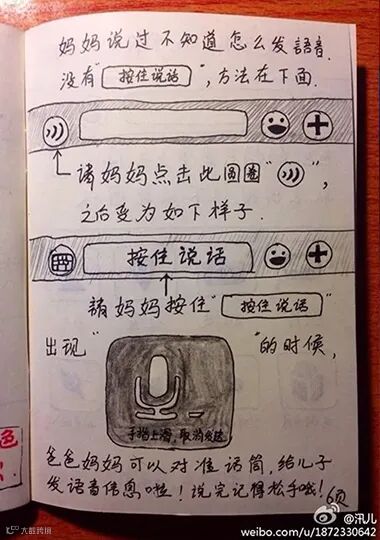 妈妈说过不知道怎么发語音.
没有"按住说话",方法在下面.
请妈妈点击此圆圈"",
之后变为如下样子.
按住说话
請妈妈按住"按住说话"
出现""的时候,
手指上滑,取消发送
爸爸妈妈可以对准话筒,给儿子
发語音信息啦!说完记得松手哦!
6页
色
大数跨境
@汛儿
weibo.com/u/1872330642